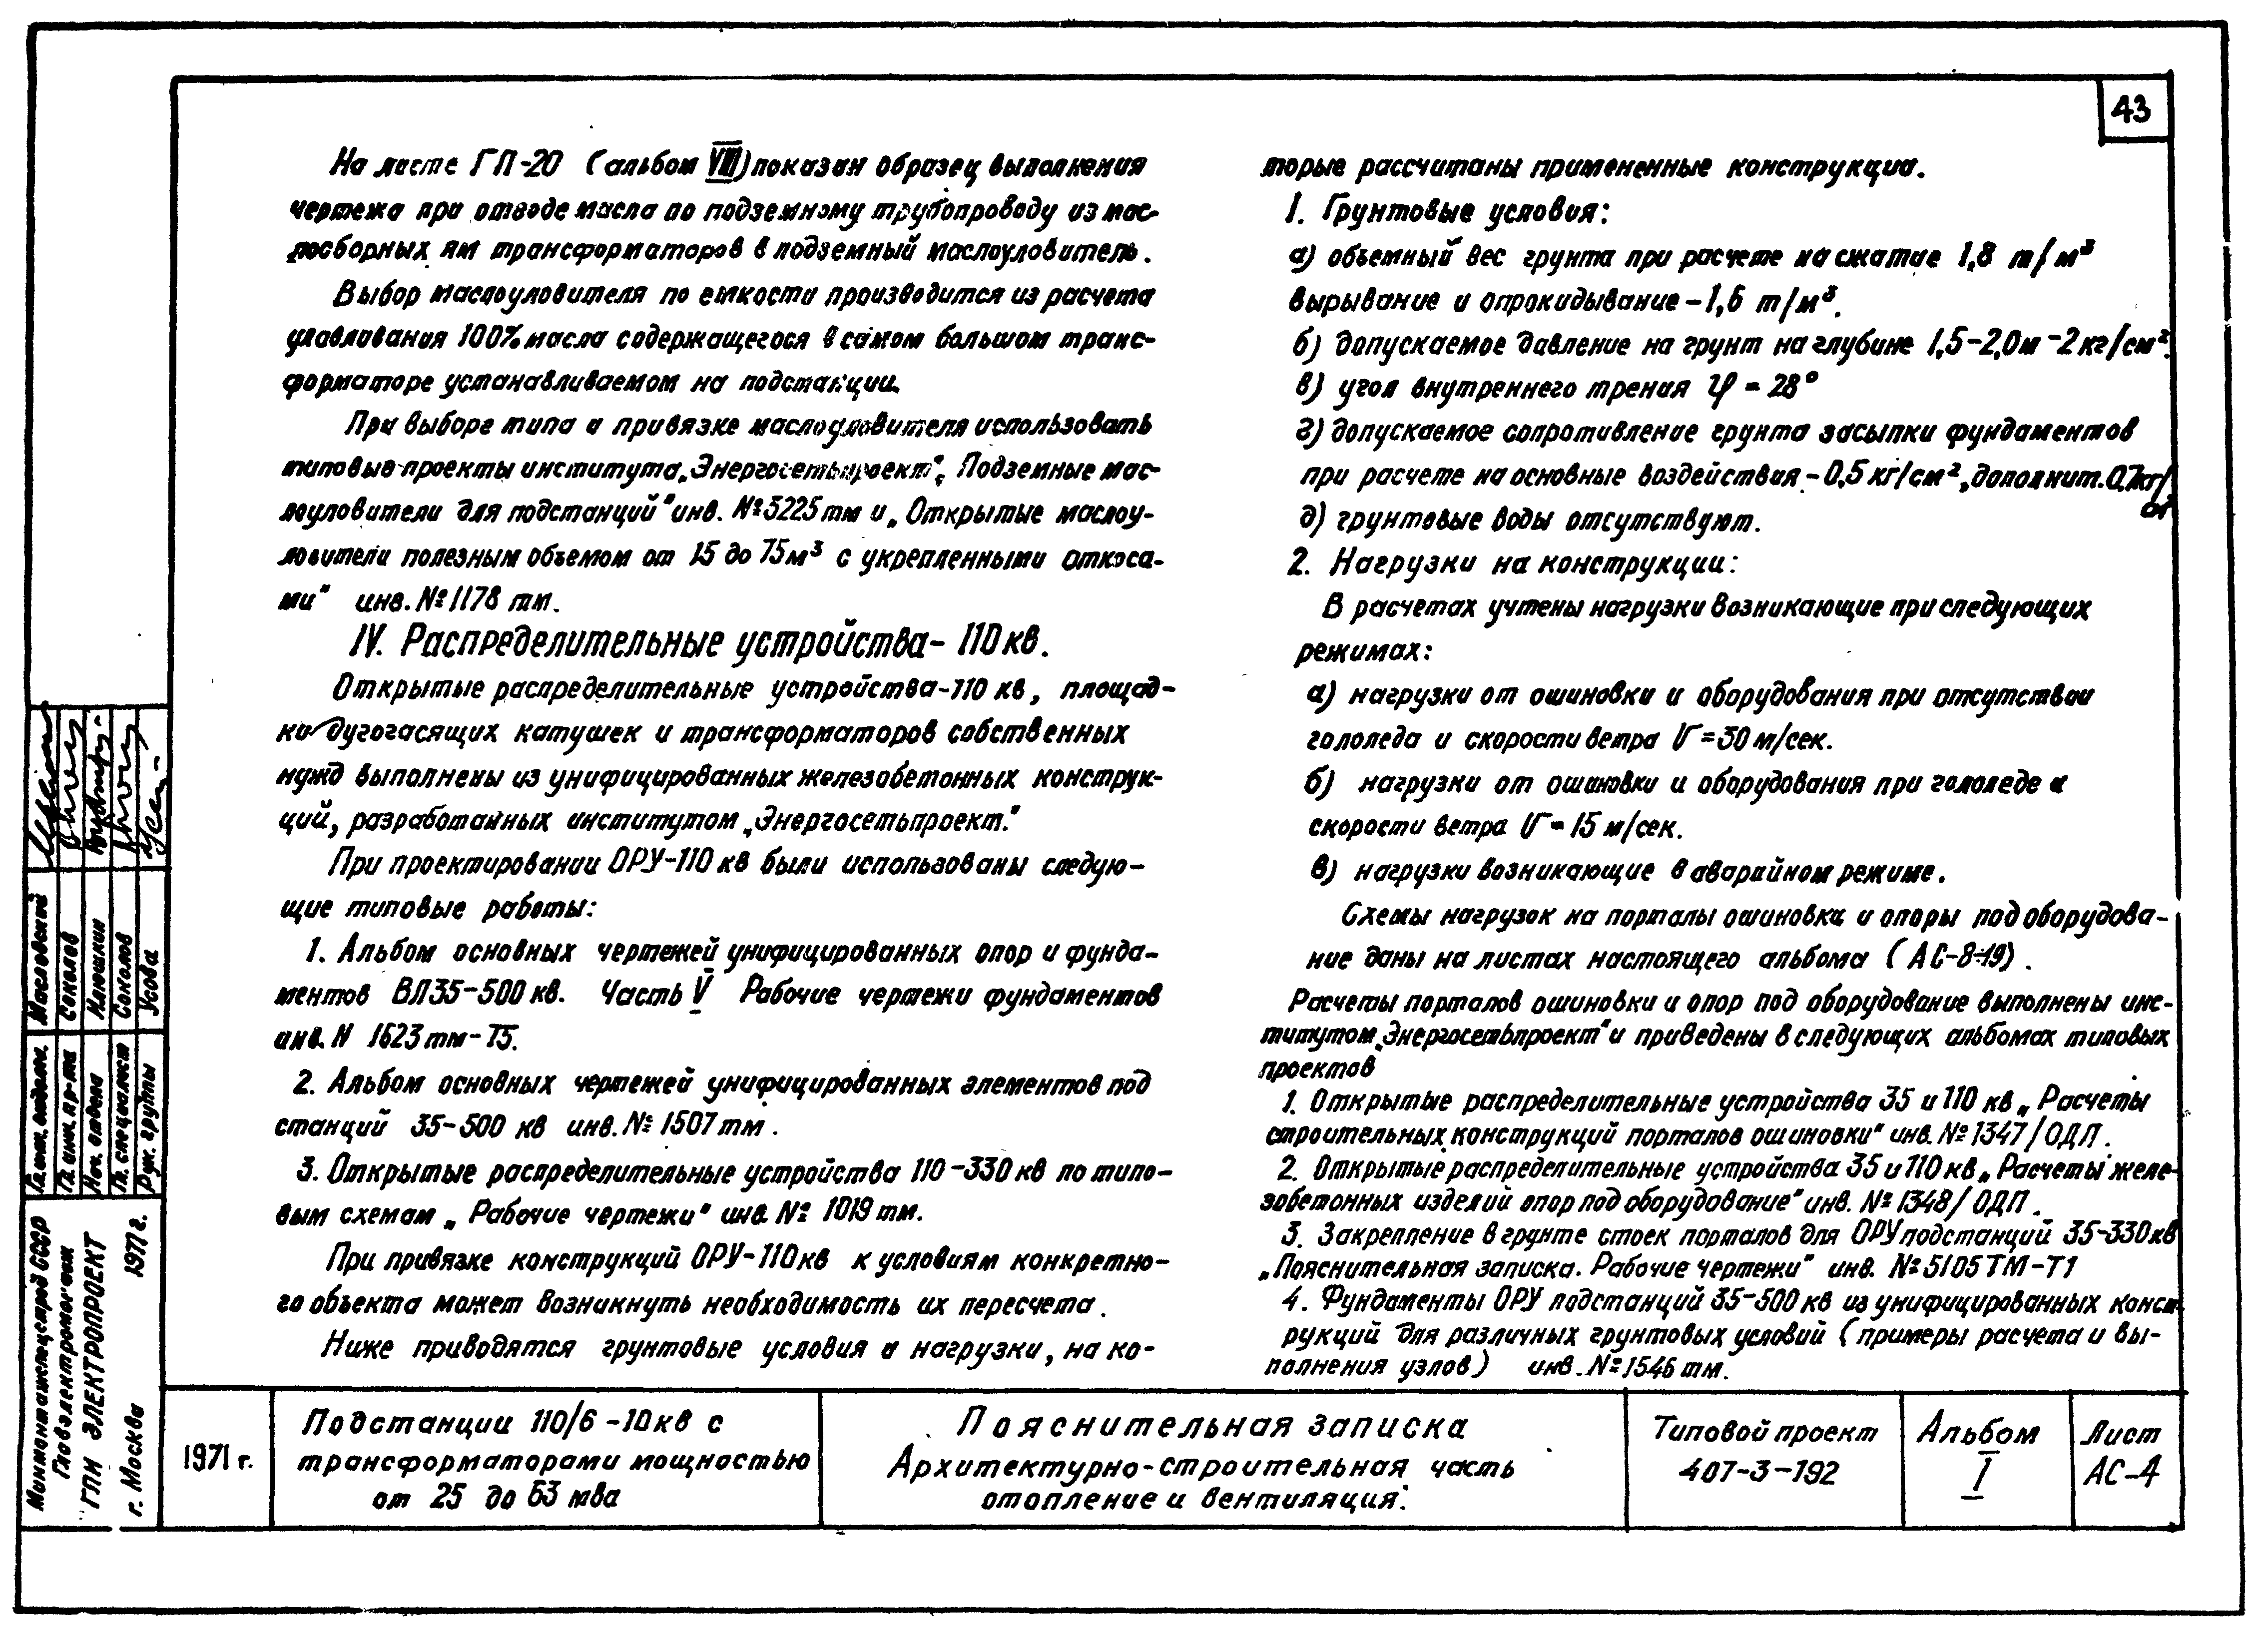 43
На листе ГП-20 (альбом VIII) показан образец выполнения
чертежа при отводе масла по подземному трубопроводу из мас-
лосборных ям трансформаторов в подземный маслоуловитель.
Выбор маслоуловителя по емкости производится из расчета
улавливания 100% масла содержащегося в самом большом транс-
форматоре устанавливаемом на подстанции.
При выборе типа и привязке маслоуловителя использовать
типовые проекты института „Энергосетьпроект“: „Подземные мас-
лоуловители для подстанций“ инв. №3225тм и „Открытые маслоу-
ловители полезным объемом от 15 до 75м³ с укрепленными откоса-
ми“ инв. №1178 тм.
IV. Распределительные устройства- 110кв.
Открытые распределительные устройства-110 кв, площад-
ки дугогасящих катушек и трансформаторов собственных
нужд выполнены из унифицированных железобетонных конструк-
ций, разработанных институтом „Энергосетьпроект.“
При проектировании ОРУ-110 кв были использованы следую-
щие типовые работы:
1. Альбом основных чертежей унифицированных опор и фунда-
ментов ВЛ35-500 кв. Часть V Рабочие чертежи фундаментов
инв. N 1623тм-Т5.
2. Альбом основных чертежей унифицированных элементов под
станций 35-500 кв инв. № 1507тм.
3. Открытые распределительные устройства 110-330кв по типо-
вым схемам „Рабочие чертежи“ инв. № 1019 тм.
При привязке конструкций ОРУ-110кв к условиям конкретно-
го объекта может возникнуть необходимость их пересчета.
Ниже приводятся грунтовые условия и нагрузки, на ко-
торые рассчитаны примененные конструкции.
1. Грунтовые условия:
а) объемный вес грунта при расчете на сжатие 1,8 т/м³
вырывание и опрокидывание-1,6 т/м³.
б) допускаемое давление на грунт на глубине 1,5-2,0м -2кг/см².
в) угол внутреннего трения φ = 28°
г) допускаемое сопротивление грунта засыпки фундаментов
при расчете на основные воздействия -0,5 кг/см², дополнит. 0,7кг/
см²
д) грунтовые воды отсутствуют.
2. Нагрузки на конструкции:
В расчетах учтены нагрузки возникающие при следующих
режимах:
а) нагрузки от ошиновки и оборудования при отсутствии
гололеда и скорости ветра V=30 м/сек.
б) нагрузки от ошиновки и оборудования при гололеде и
скорости ветра V= 15 м/сек.
в) нагрузки возникающие в аварийном режиме.
Схемы нагрузок на порталы ошиновки и опоры под оборудова-
ние даны на листах настоящего альбома (АС-8÷19).
Расчеты порталов ошиновки и опор под оборудование выполнены инс-
титутом „Энергосетьпроект“ и приведены в следующих альбомах типовых
проектов
1. Открытые распределительные устройства 35 и 110 кв „Расчеты
строительных конструкций порталов ошиновки“ инв. №1347/ОДП.
2. Открытые распределительные устройства 35 и 110 кв „Расчеты желе-
зобетонных изделий опор под оборудование“ инв. №1348/ОДП.
3. Закрепление в грунте стоек порталов для ОРУ подстанций 35-330кв
„Пояснительная записка. Рабочие чертежи“ инв. №5105ТМ-Т1
4. Фундаменты ОРУ подстанций 35-500 кв из унифицированных конст-
рукций для различных грунтовых условий (примеры расчета и вы-
полнения узлов) инв. №1546 тм.
Гл. инж. отдела. Масловский
Гл. инж. пр-та Соколов
Нач. отдела Илюшкин
Гл. специалист Соколов
Рук. группы Усова
Минмонтажспецстрой СССР
Главэлектромонтаж
ГПИ ЭЛЕКТРОПРОЕКТ
г. Москва 1971г.
1971 г.
Подстанции 110/6-10кв с
трансформаторами мощностью
от 25 до 63 мва
Пояснительная записка
Архитектурно-строительная часть
отопление и вентиляция.
Типовой проект
407-3-192
Альбом
I
Лист
АС-4